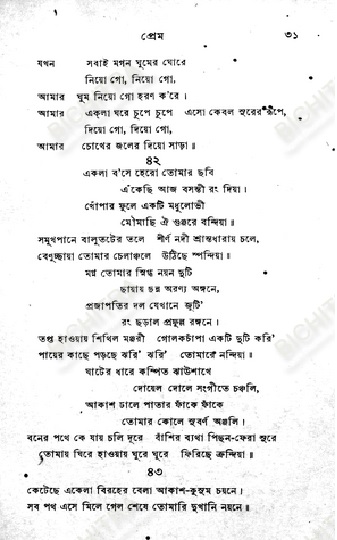 প্রেম ৩১
যখন সবাই মগন ঘুমের ঘোরে
নিয়ো গো, নিয়ো গো,
আমার ঘুম নিয়ো গো হরণ ক'রে।
আমার একলা ঘরে চুপে চুপে এসো কেবল সুরের রূপে,
দিয়ো গো, দিয়ো গো,
আমার চোখের জলের দিয়ো সাড়া॥
৪২
একলা ব'সে হেরো তোমার ছবি
এঁকেছি আজ বসন্তী রং দিয়া।
খোঁপার ফুলে একটি মধুলোভী
মৌমাছি ঐ গুঞ্জরে বন্দিয়া॥
সমুখপানে বালুতটের তলে শীর্ণ নদী শ্রান্তধারায় চলে,
বেণুচ্ছায়া তোমার চেলাঞ্চলে উঠিছে স্পন্দিয়া॥
মগ্ন তোমার স্নিগ্ধ নয়ন দুটি
ছায়ায় ছন্ন অরণ্য অঙ্গনে,
প্রজাপতির দল যেখানে জুটি'
রং ছড়াল প্রফুল্ল রঙ্গনে।
তপ্ত হাওয়ায় শিথিল মঞ্জরী গোলকচাঁপা একটি দুটি করি'
পায়ের কাছে পড়ছে ঝরি' ঝরি' তোমারে নন্দিয়া॥
ঘাটের ধারে কম্পিত ঝাউশাখে
দোয়েল দোলে সংগীতে চঞ্চলি,
আকাশ ঢালে পাতার ফাঁকে ফাঁকে
তোমার কোলে সুবর্ণ অঞ্জলি।
বনের পথে কে যায় চলি দূরে বাঁশির ব্যথা পিছন-ফেরা সুরে
তোমায় ঘিরে হাওয়ায় ঘুরে ঘুরে ফিরিছে ক্রন্দিয়া॥
৪৩
কেটেছে একেলা বিরহের বেলা আকাশ-কুসুম চয়নে।
সব পথ এসে মিলে গেল শেষে তোমারি দুখানি নয়নে॥